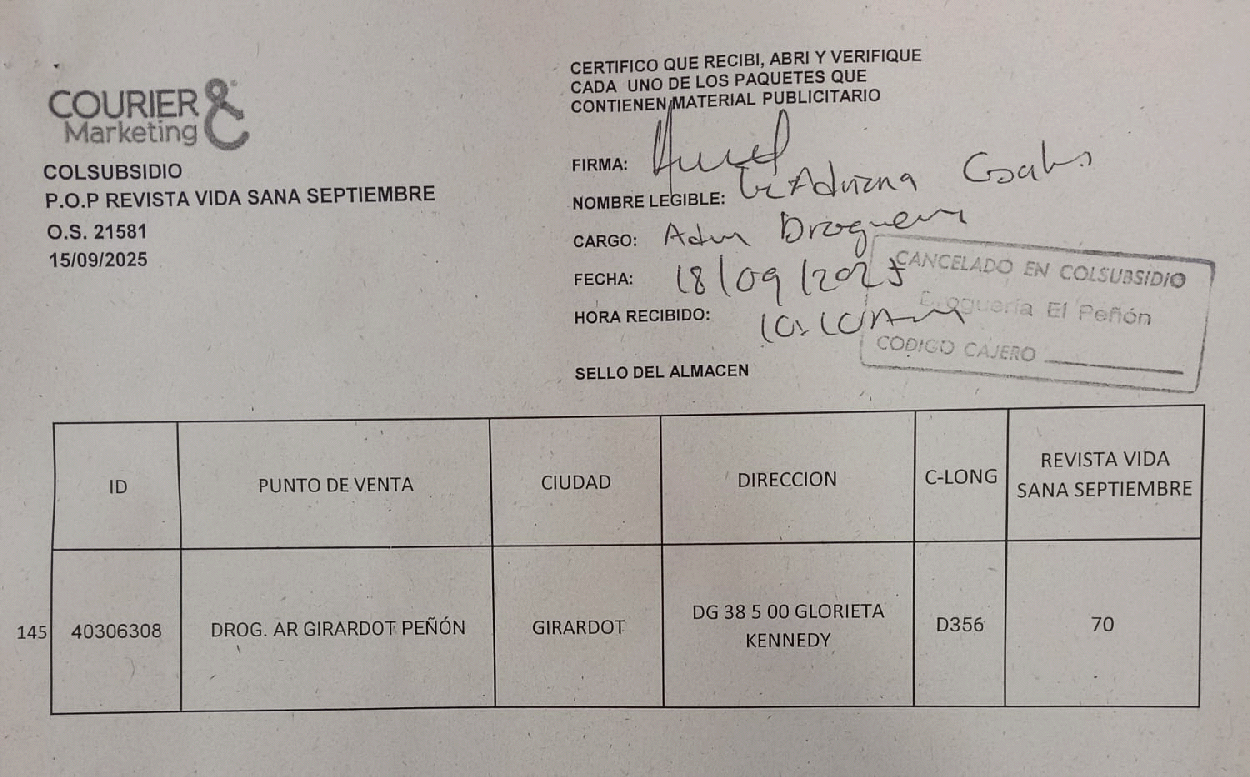 COURIER &
Marketing
COLSUBSIDIO
P.O.P REVISTA VIDA SANA SEPTIEMBRE
O.S. 21581
15/09/2025
CERTIFICO QUE RECIBI, ABRI Y VERIFIQUE
CADA UNO DE LOS PAQUETES QUE
CONTIENEN MATERIAL PUBLICITARIO
FIRMA:
NOMBRE LEGIBLE: Adriana
CARGO: Adm Drogueria
FECHA: 18/09/2025
HORA RECIBIDO: 10:10Am
SELLO DEL ALMACEN
CANCELADO EN COLSUBSIDIO
Droguería El Peñón
CODIGO CAJERO
ID PUNTO DE VENTA CIUDAD DIRECCION C-LONG REVISTA VIDA
SANA SEPTIEMBRE
145 40306308 DROG. AR GIRARDOT PEÑÓN GIRARDOT DG 38 5 00 GLORIETA
KENNEDY D356 70